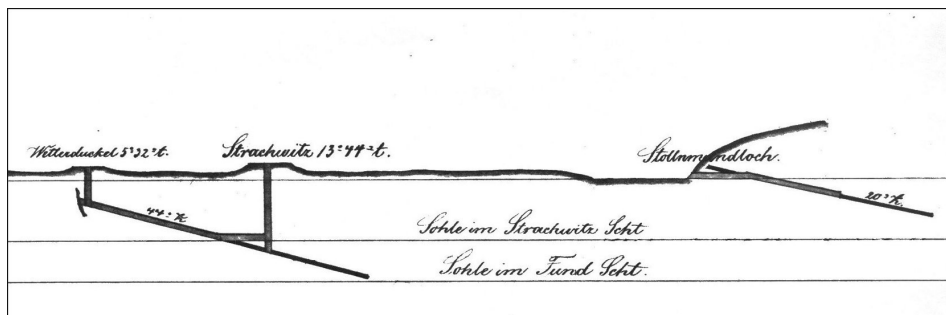 Wetterduckel 5°32"t.
Strachwitz 13°44"t.
Stollnmundloch.
44"t
20"t.
Sohle im Strachwitz Scht
Sohle im Fund Scht.